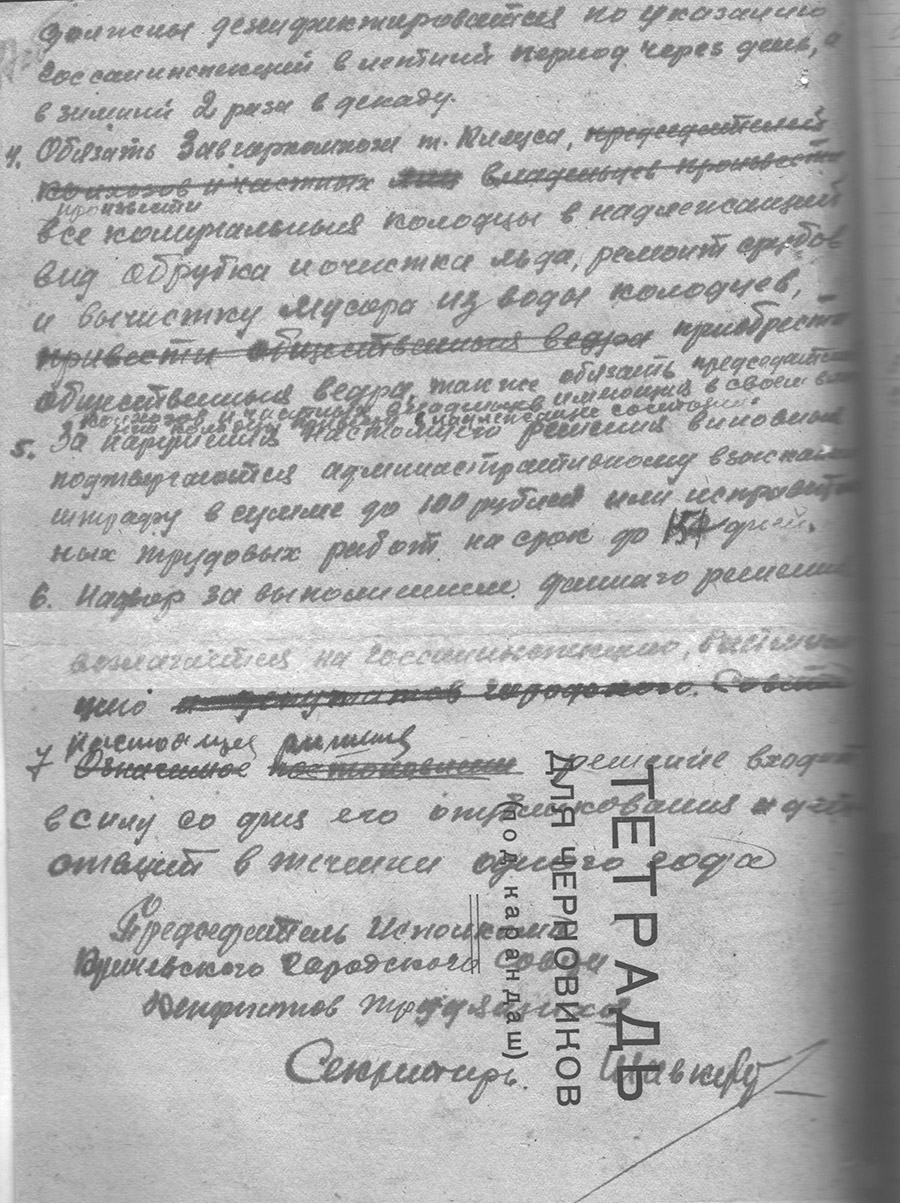 должны дезинфиктироватся по указанию
Госсанинспекций в летний период через день, а
в зимний 2 раза в декаду.
4. Обязать Завгоркомхоза т. председателей
колхозов и частных лиц владельцев произвести
произвести
все комунальныя колодцы в надлежащий
вид обрубка и очистка льда, ремонт срубов
и вычистку мусора из воды колодцев,
привести общественныя ведра приобрести
общественныя ведра, также обязать председателей
колхозов и частных имеющия в своем
колодцы привести в надлежащие состояние.
5. За нарушения настоящего решения виновныя
подвергаются административному взыскан
штрафу в сумме до 100 рублей или исправител
ных трудовых работ на срок до 15 дней.
6. Надзор за выполнением даннаго решения
возлагается на Госсанинспекцию,
цию и депутатов городского Совета
настоящее решение
7 Означенное постановление решение входит
в силу со дня его опубликования и дей
ствует в течении одного года
Председатель Исполкома
Кричевского Городского Совета
Депутатов трудящихся
Секретарь
ТЕТРАДЬ
ДЛЯ ЧЕРНОВИКОВ
(под карандаш)